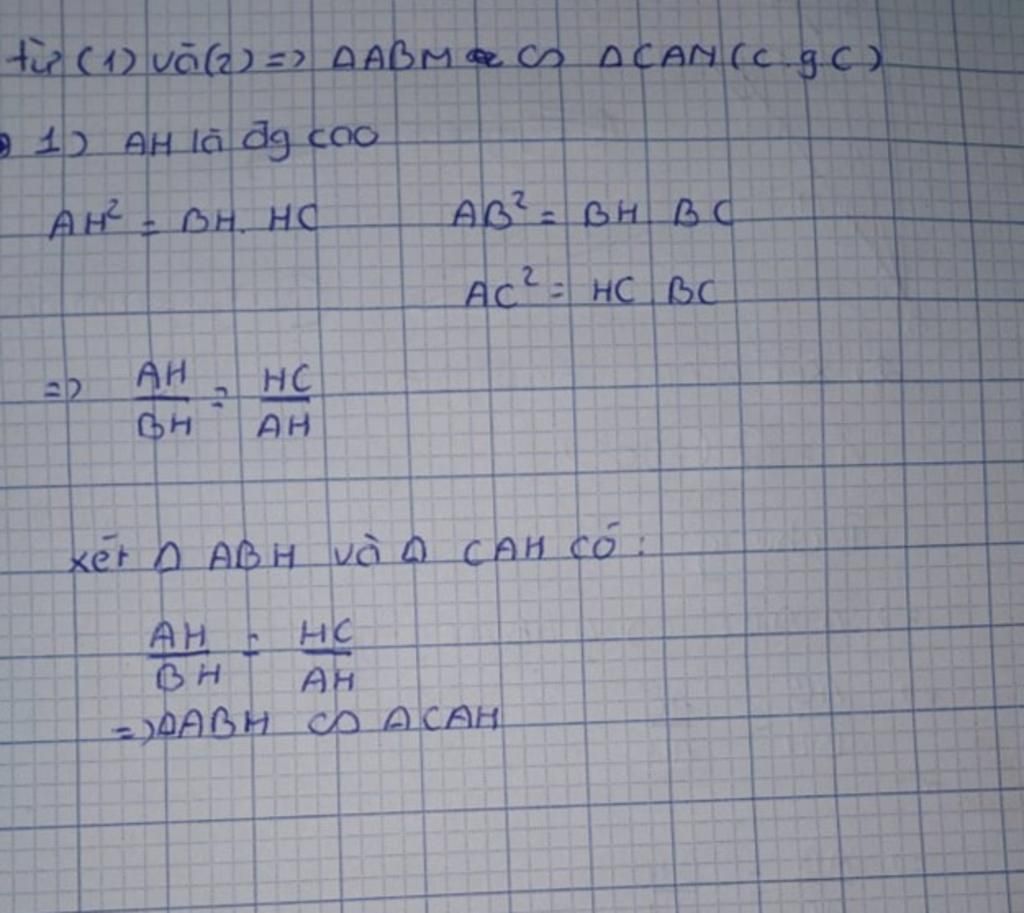 từ (1) và (2) => ΔABM ∽ ΔCAN (c.g.c)
1) AH là đg cao
AH² = BH. HC AB² = BH BC
AC² = HC BC
=> AH/BH = HC/AH
xét Δ ABH và Δ CAH có:
AH/BH = HC/AH
=> ΔABH ∽ ΔCAH